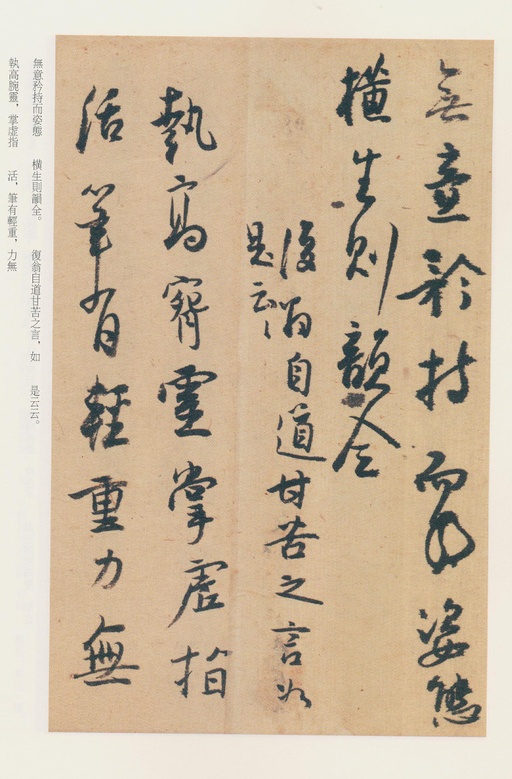 無意矜持而姿態
橫生則韻全
復翁自道甘苦之言如
是云云
執高腕靈掌虛指
活筆有輕重力無
無意矜持而姿態　橫生則韻全。　復翁自道甘苦之言，如　是云云。
執高腕靈，掌虛指　活，筆有輕重，力無